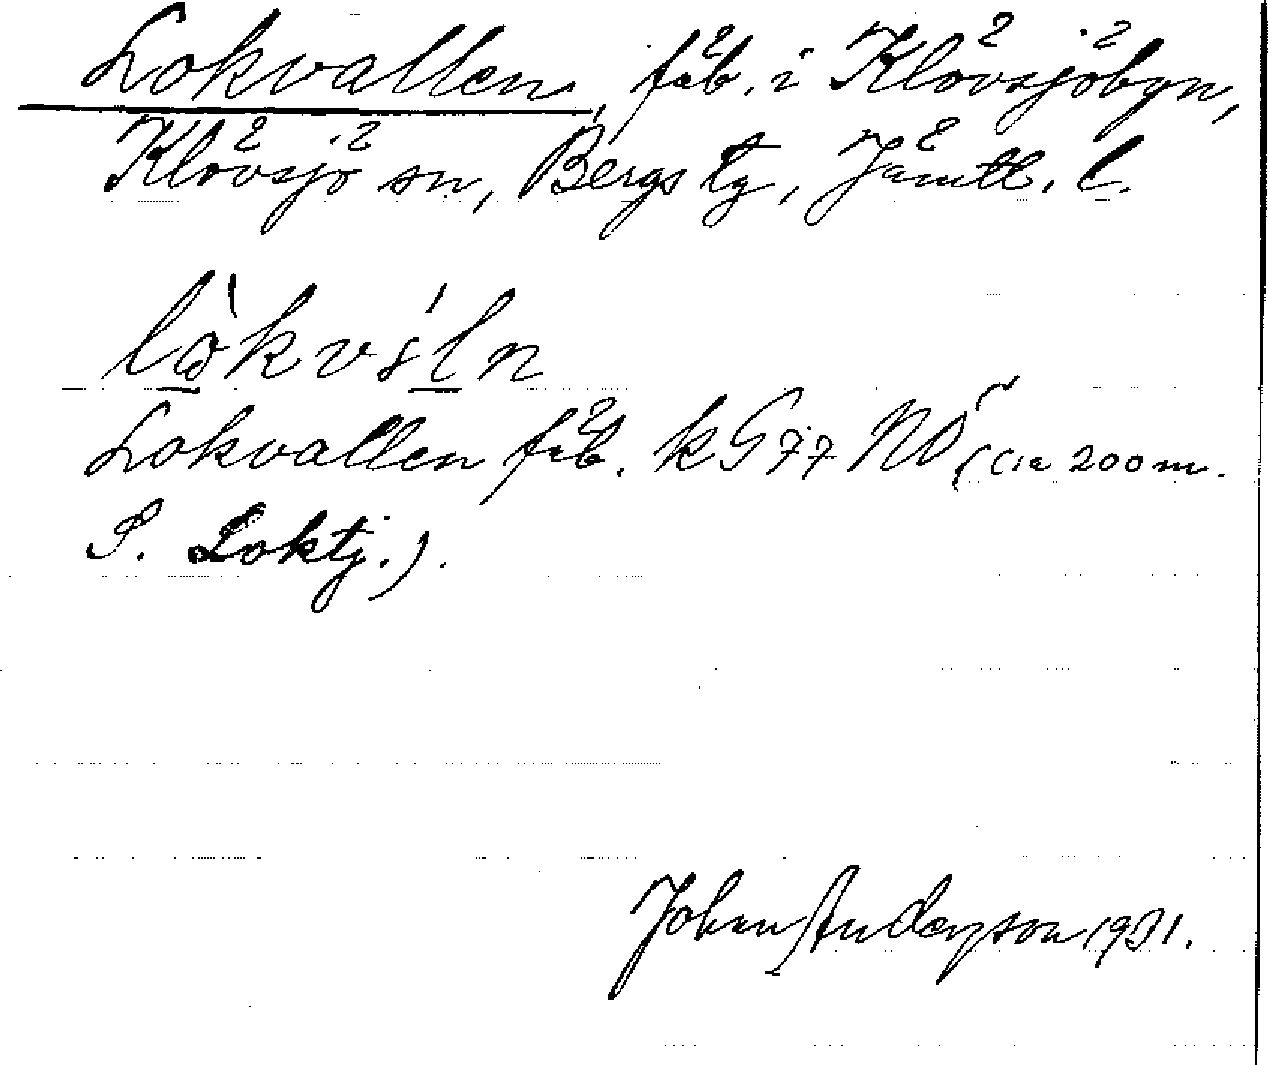 Lokvallen, fäb. i Klövsjöbyn,
Klövsjö sn, Bergs tg, Jämtl. l.
Lokvallen fäb. kG77 NO (c:a 200 m.
S. Loktj.).
Johan Anderson 1931.